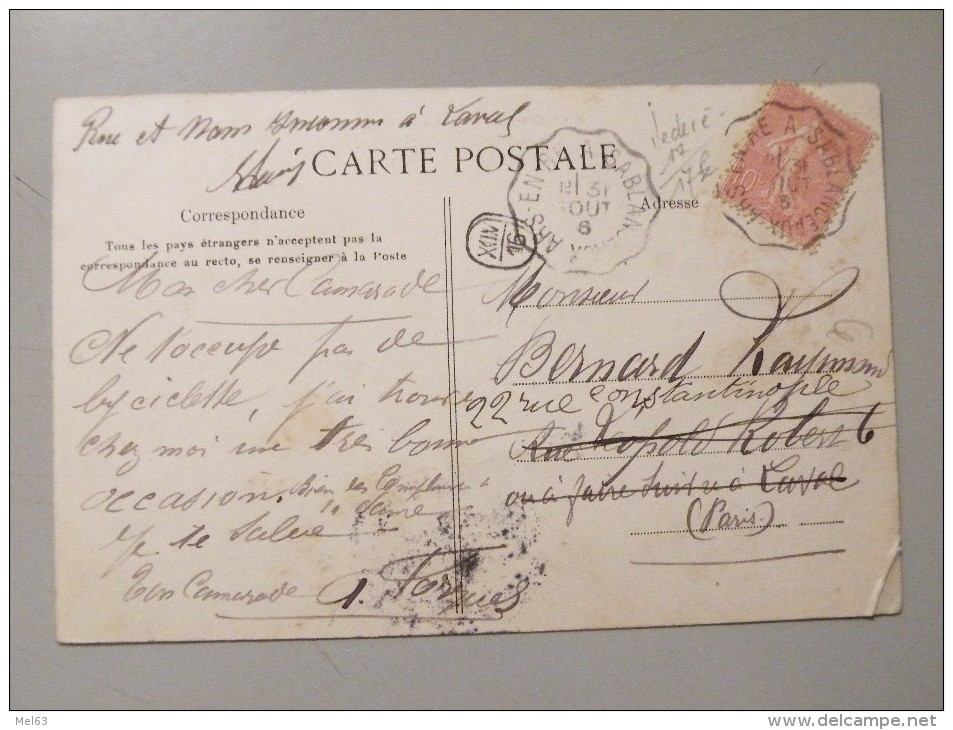 Rue et Nom Inconnu à Laval
CARTE POSTALE
Correspondance
Adresse
Tous les pays étrangers n'acceptent pas la
correspondance au recto, se renseigner à la Poste
ARS-EN-RE A SABLANCEAUX
31
AOUT
6
ARS-EN-RE A SABLANCEAUX
31
AOUT
6
XVIIV
16
17
17 E
Mon cher Camarade
Ne t'occupe pas de
byciclette, j'ai trouvé
chez moi une très bonne
occasion. Bien des Compliments à
ta dame
Je te Salue
Ton Camarade
Monsieur
Bernard Raymond
22 rue Constantinople
Rue Léopold Robert 6
ou à faire suivre à Laval
(Paris)
6
Mel63
delcampe.net